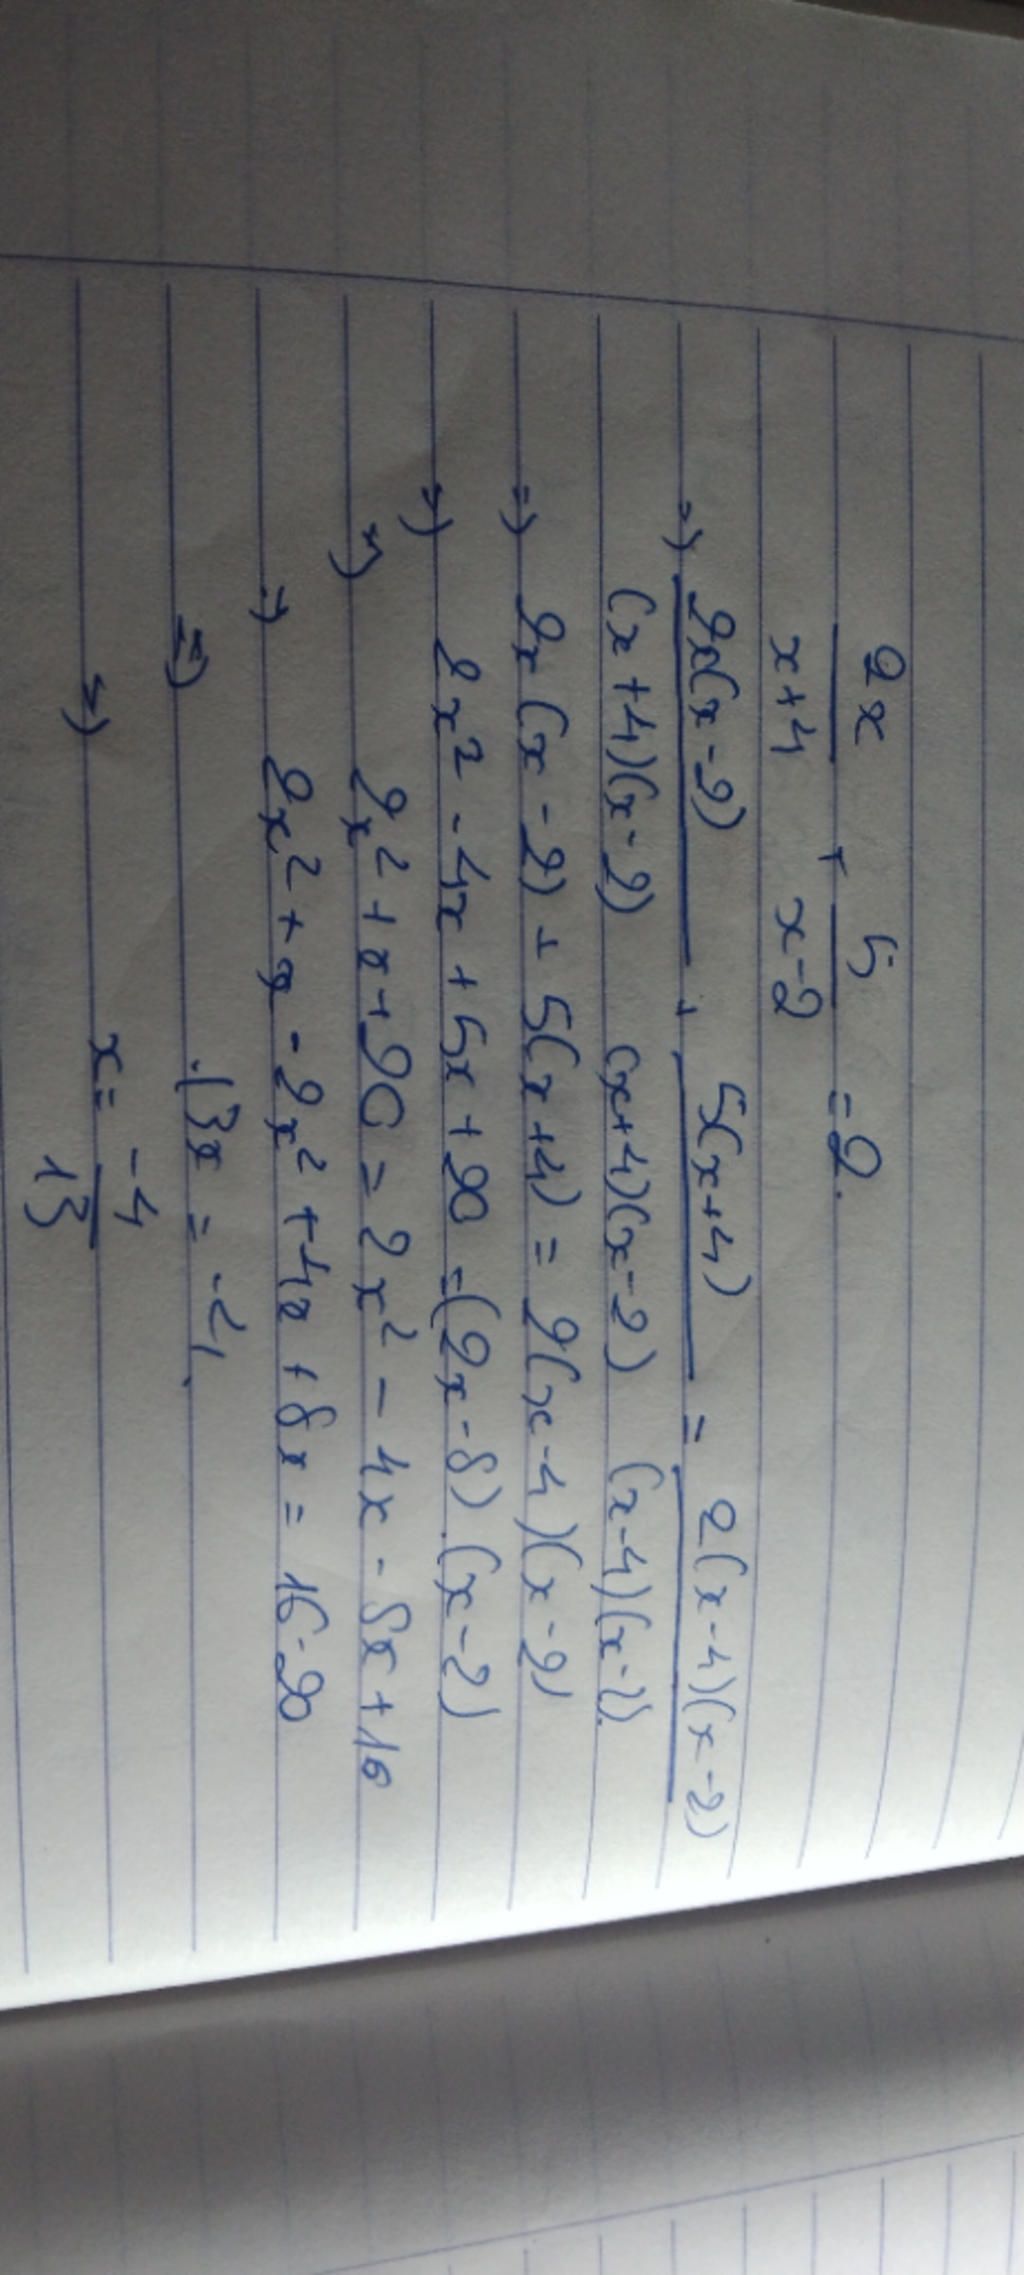 2x/x+4 + 5/x-2 = 2.
=> 2x(x-2)/(x+4)(x-2) + 5(x+4)/(x+4)(x-2) = 2(x-4)(x-2)/(x-4)(x-2).
=> 2x(x-2) + 5(x+4) = 2(x-4)(x-2)
=> 2x² - 4x + 5x + 20 = (2x-8).(x-2)
=> 2x² + x + 20 = 2x² - 4x - 8x + 16
=> 2x² + x - 2x² + 4x + 8x = 16-20
=> 13x = -4.
=> x = -4/13